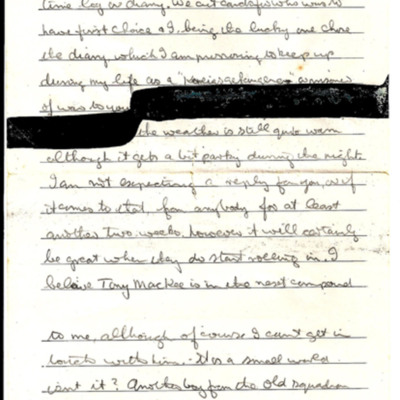 time log or diary. We cut cards for who was to
have first choice & I, being the lucky one chose
the diary which I am purposing to keep up
during my life as a " prisoner
of war to you
the weather is still quite warm
although it gets a bit parky during the nights
I am not expecting a reply from you, or if
it comes to that, from anybody for at least
another two weeks, however it will certainly
be great when they do start rolling in. I
believe Tony MacKee is in the next compound
to me, although of course I can't get in
touch with him. - It's a small world
isn't it? Another boy from the old squadron